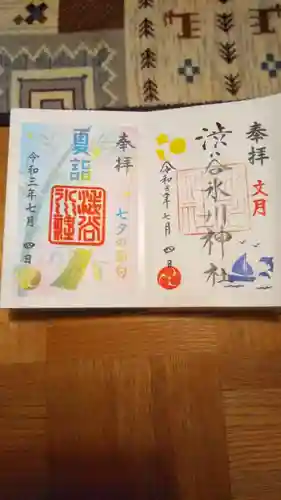 奉拝
文月
渋谷氷川神社
令和三年七月四日
奉拝
七夕の節句
夏詣
澁谷氷川社
令和三年七月四日